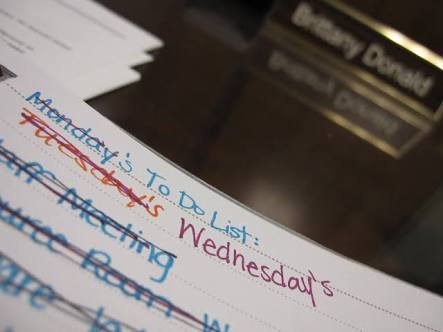 Brittany Donald
Monday's To Do List:
Tuesday's Wednesday's
Staff Meeting
Room